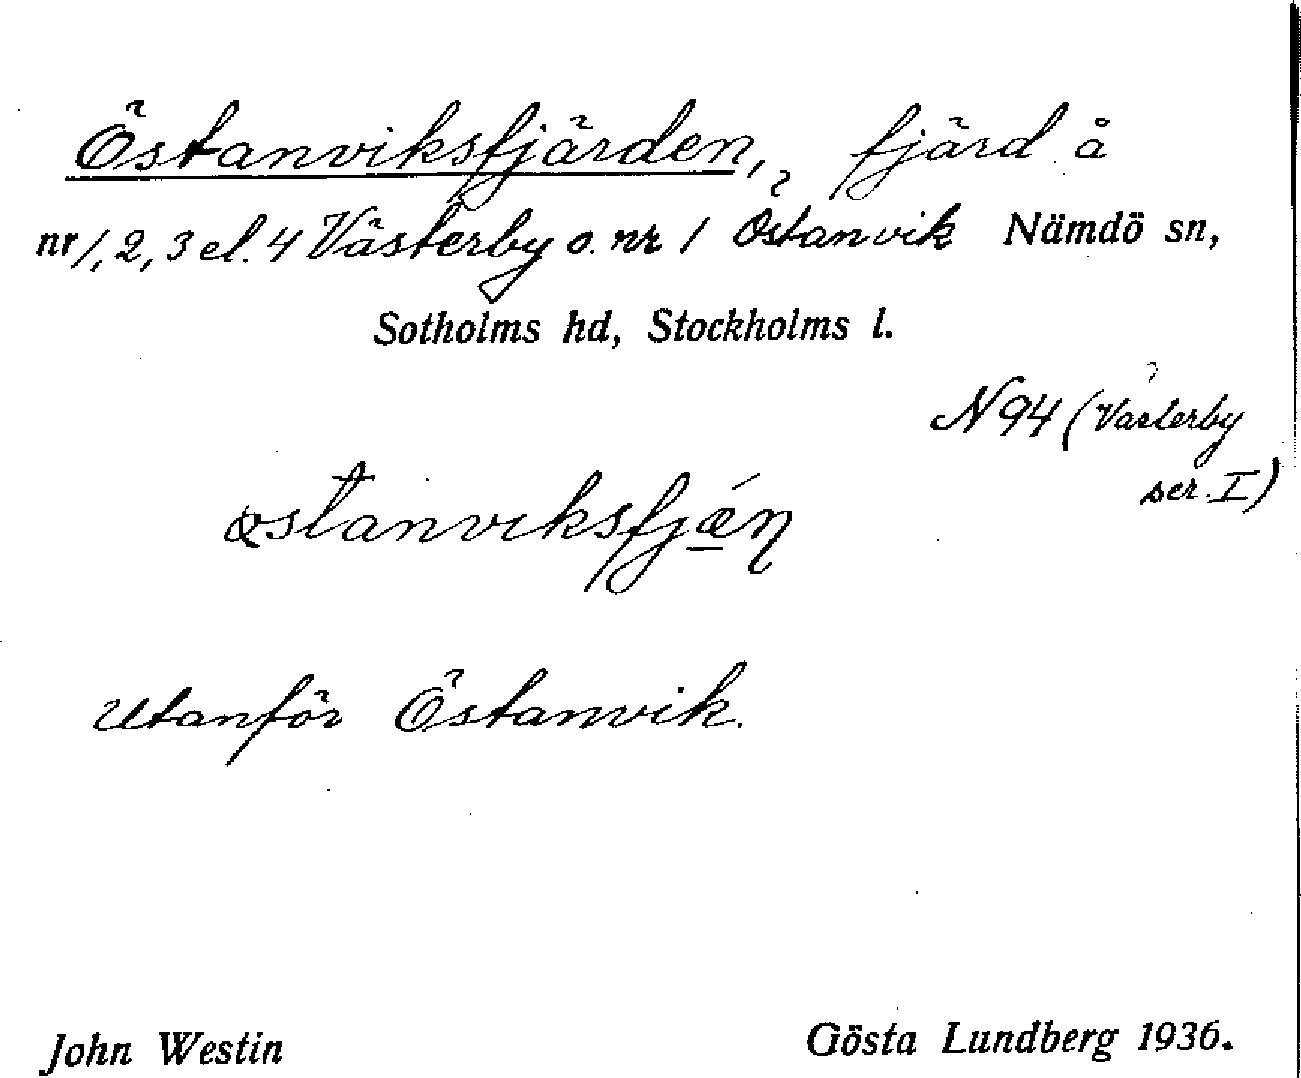 Östanviksfjärden, fjärd å
nr 1, 2, 3 el. 4 Västerby o. nr 1 Östanvik Nämdö sn,
Sotholms hd, Stockholms l.
N 94 (Västerby
ser. I)
Utanför Östanvik.
John Westin
Gösta Lundberg 1936.